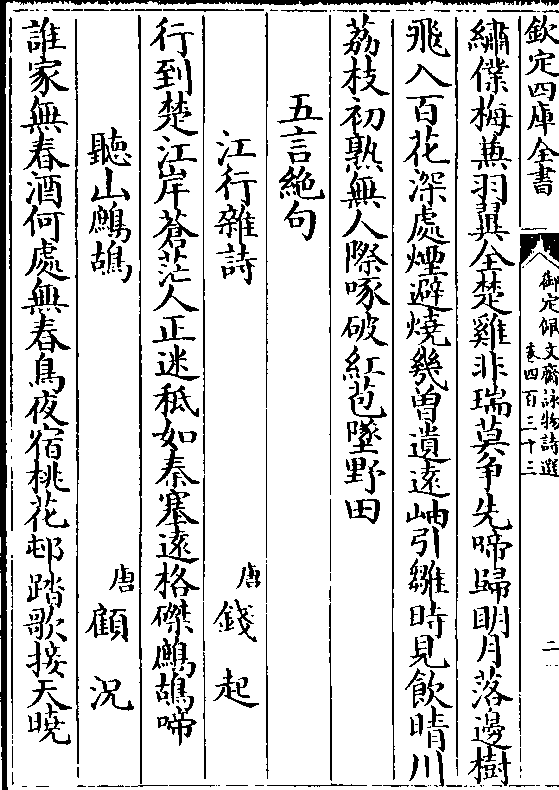 欽定四庫全書
御定佩文齋詠物詩選
卷四百三十三
二
繡僕梅兼羽翼全楚雞非瑞莫爭先啼歸明月落邊樹
飛入百花深處煙避燒幾曽遺遠岫引雛時見飲晴川
荔枝初熟無人際啄破紅苞墜野田
五言絶句
江行雜詩
唐 錢起
行到楚江岸蒼茫人正迷秪如秦塞遠格磔鷓鴣啼
聽山鷓鴣
唐 顧况
誰家無春酒何處無春鳥夜宿桃花邨踏歌接天曉